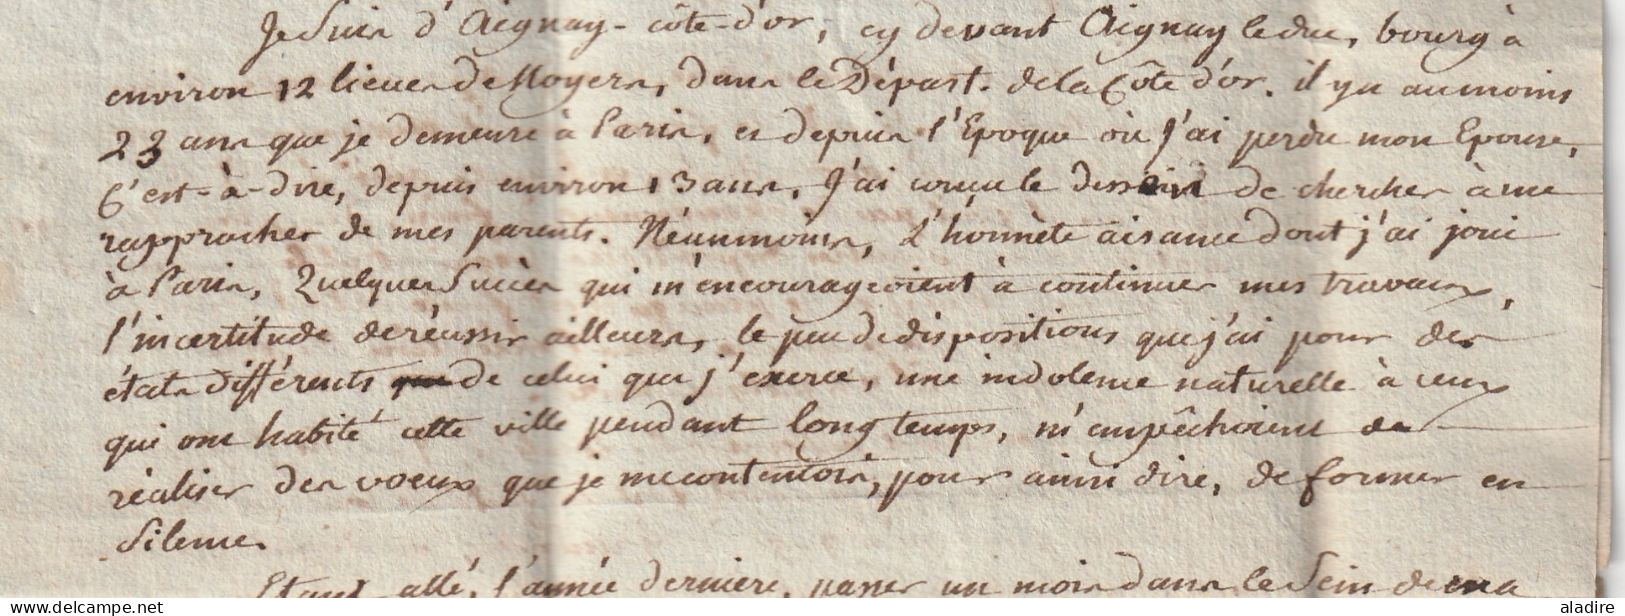 Je suis d'Aignay-côte-d'or, cy devant Aignay le duc, bourg à
environ 12 lieues de Noyers, dans le Départ. de la Côte d'or. il y a au moins
23 ans que je demeure à Paris, et depuis l'Epoque où j'ai perdu mon Epouse,
C'est-à-dire, depuis environ 13 ans, J'ai conçu le dessein de chercher à me
rapprocher de mes parents. Néanmoins, L'honnête aisance dont j'ai joui
à Paris, Quelques Succès qui m'encourageoient à continuer mes travaux,
l'incertitude de réussir ailleurs, le peu de dispositions que j'ai pour des
états différents de celui que j'exerce, une indolence naturelle à ceux
qui ont habité cette ville pendant long temps, m'empêchoient de
réaliser des voeux que je me contentois, pour ainsi dire, de former en
Silence.
Etant allé, l'année dernière, passer un mois dans le Sein de ma
delcampe.net
aladire